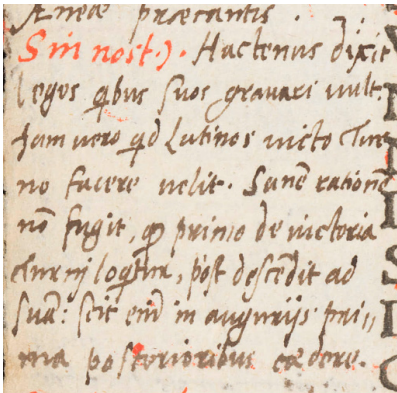 Æneæ præcantis.
Sin nost.). Hactenus dixit
leges qͥbus suos gravari vult
Jam vero qͥd Latinos victo Tur
no facere velit. Sanē rationē
nō fugit, qͽ primo de victoria
Turnj loqͥtur, pòst descēdit ad
suā: scit enī in augurijs pri⸗
ma posterioribus cædere.